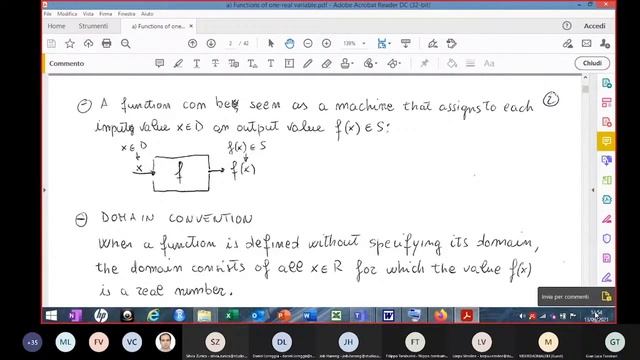 a) Functions of one-real variable.pdf - Adobe Acrobat Reader DC (32-bit)
Home
Strumenti
a) Functions of one-...
Accedi
2 / 42
139%
Commento
Chiudi
A function can be seen as a machine that assigns to each
2
input value x∈D an output value f(x) ∈ S:
x∈D
f(x) ∈ S
x
f
f(x)
DOMAIN CONVENTION
When a function is defined without specifying its domain,
the domain consists of all x∈R for which the value f(x)
is a real number.
Invia per commenti
+35
ML
FV
VC
SZ
DL
JH
FT
LV
M
GT